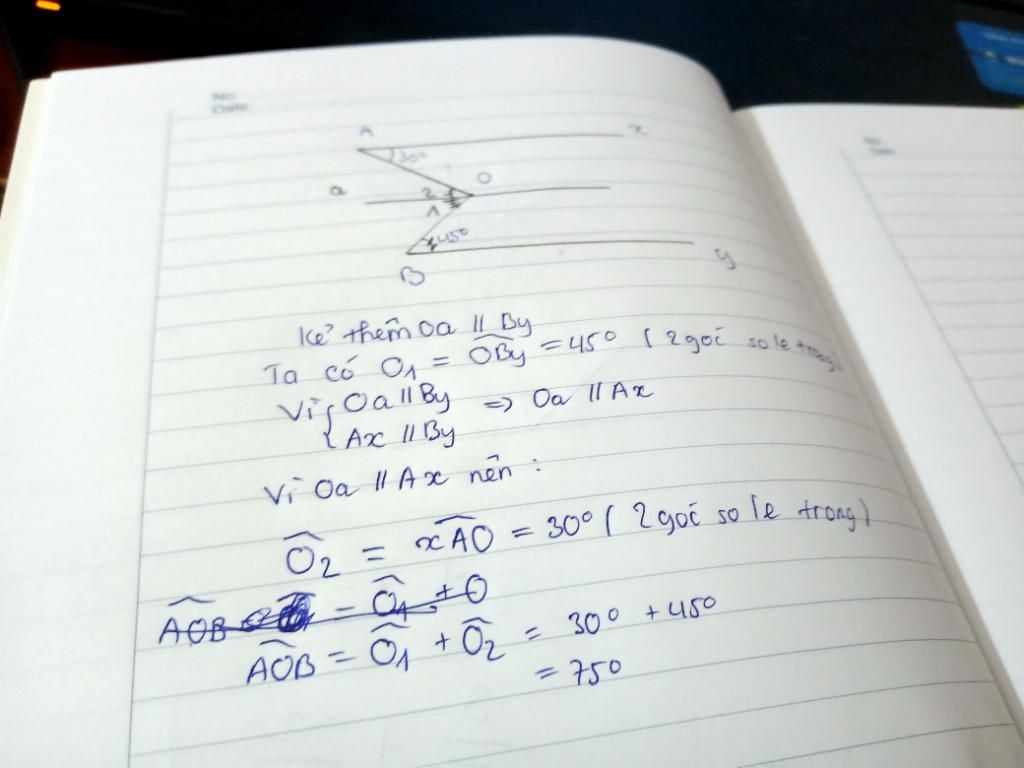 No.
Date
A
x
30°
a
2
O
1
45°
B
y
Kẻ thêm Oa // By
Ta có O1 = OBy = 45° ( 2 góc so le trong)
Vì { Oa // By => Oa // Ax
Ax // By
Vì Oa // Ax nên :
O2 = xAO = 30° ( 2 góc so le trong)
AOB = O1 + O
AOB = O1 + O2 = 30° + 45°
= 75°